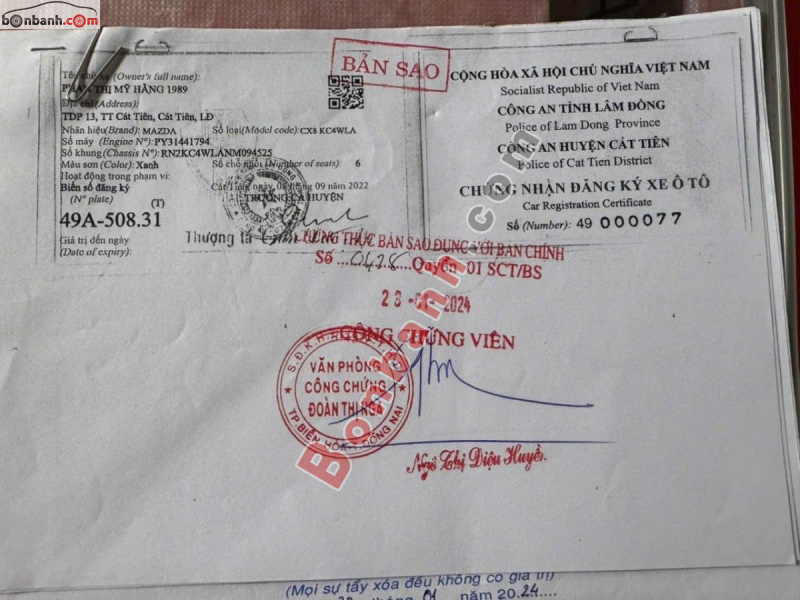 bonbanh.com
BẢN SAO
Tên chủ xe (Owner's full name):
PHAN THỊ MỸ HẰNG 1989
Địa chỉ (Address):
TDP 13, TT Cát Tiên, Cát Tiên, LĐ
Nhãn hiệu(Brand): MAZDA Số loại(Model code): CX8 KC4WLA
Số máy (Engine N°): PY31441794
Số khung (Chassis N°): RN2KC4WLANM094525
Màu sơn (Color): Xanh Số chỗ ngồi (Number of seats): 6
Hoạt động trong phạm vi:
Biển số đăng ký
(N° plate) (T)
49A-508.31
Giá trị đến ngày
(Date of expiry):
Cát Tiên, ngày 09 năm 2022
TRƯỞNG CA HUYỆN
Thượng tá
CỘNG HÒA XÃ HỘI CHỦ NGHĨA VIỆT NAM
Socialist Republic of Viet Nam
CÔNG AN TỈNH LÂM ĐỒNG
Police of Lam Dong Province
CÔNG AN HUYỆN CÁT TIÊN
Police of Cat Tien District
CHỨNG NHẬN ĐĂNG KÝ XE Ô TÔ
Car Registration Certificate
Số (Number): 49 000077
CHỨNG THỰC BẢN SAO ĐÚNG VỚI BẢN CHÍNH
Số ....0428....Quyển 01 SCT/BS
23-01-2024
CÔNG CHỨNG VIÊN
VĂN PHÒNG
CÔNG CHỨNG
ĐOÀN THỊ NGA
TP.BIÊN HÒA-T.ĐỒNG NAI
Ngô Thị Diệu Huyền
Bonbanh.com
(Mọi sự tẩy xóa đều không có giá trị)
tháng 01 năm 2024